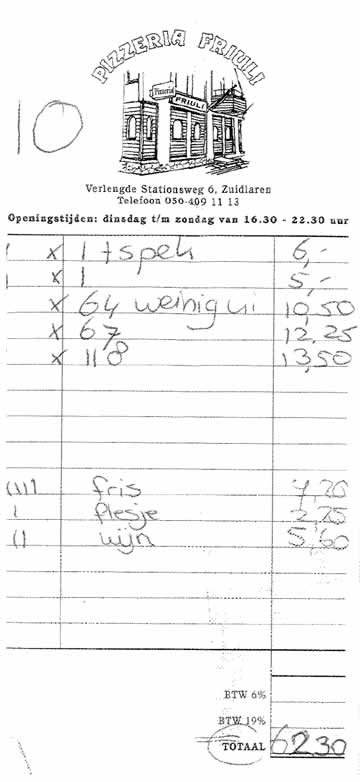 PIZZERIA FRIULI
Pizzeria
FRIULI
10
Verlengde Stationsweg 6, Zuidlaren
Telefoon 050-409 11 13
Openingstijden: dinsdag t/m zondag van 16.30 - 22.30 uur
1 x 1 + spek 6,-
1 x 1 5,-
x 64 weinig ui 10,50
x 67 12,25
x 118 13,50
IIII fris 7,20
I flesje 2,25
II wijn 5,60
BTW 6%
BTW 19%
TOTAAL 62,30